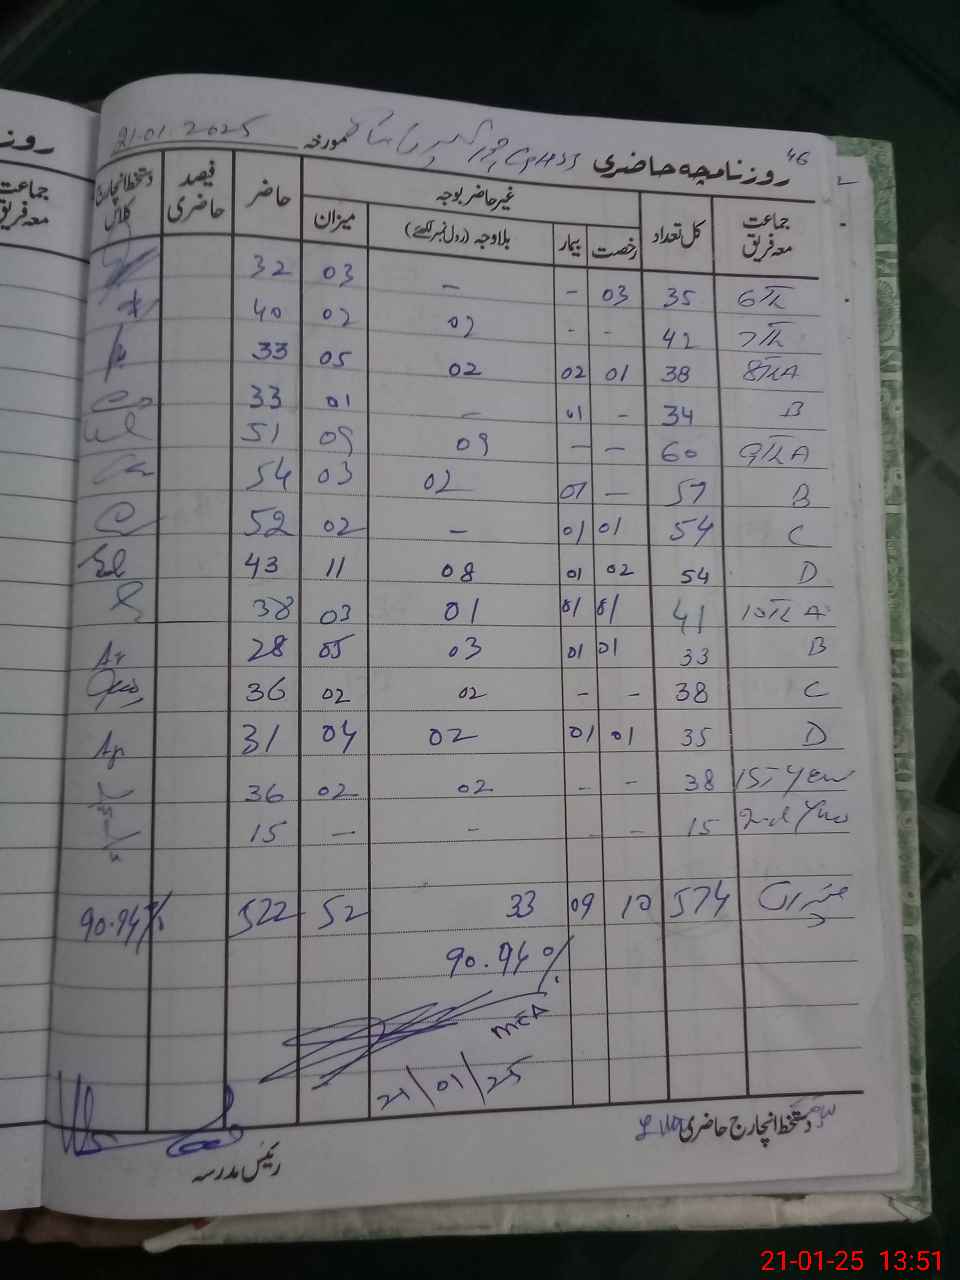 46
روزنامچہ حاضری GHSS مورخہ 21.01.2025
جماعت معہ فریق کل تعداد غیر حاضر بوجہ حاضر فیصد حاضری دستخط انچارج کلاس
رخصت بیمار بلاوجہ (رول نمبر لکھئے) میزان
6Th 35 03 - - 03 32
7Th 42 - - 02 02 40
8Th A 38 01 02 02 05 33
B 34 - 01 - 01 33
9Th A 60 - - 09 09 51
B 57 - 01 02 03 54
C 54 01 01 - 02 52
D 54 02 01 08 11 43
10Th A 41 01 01 01 03 38
B 33 01 01 03 05 28
C 38 - - 02 02 36
D 35 01 01 02 04 31
1st Year 38 - - 02 02 36
2nd Year 15 - - - - 15
میزان 574 10 09 33 52 522 90.94%
90.94%
MEA
21/01/25
دستخط انچارج حاضری
رئیس مدرسہ
روز
جماعت
معہ فریق
21-01-25 13:51